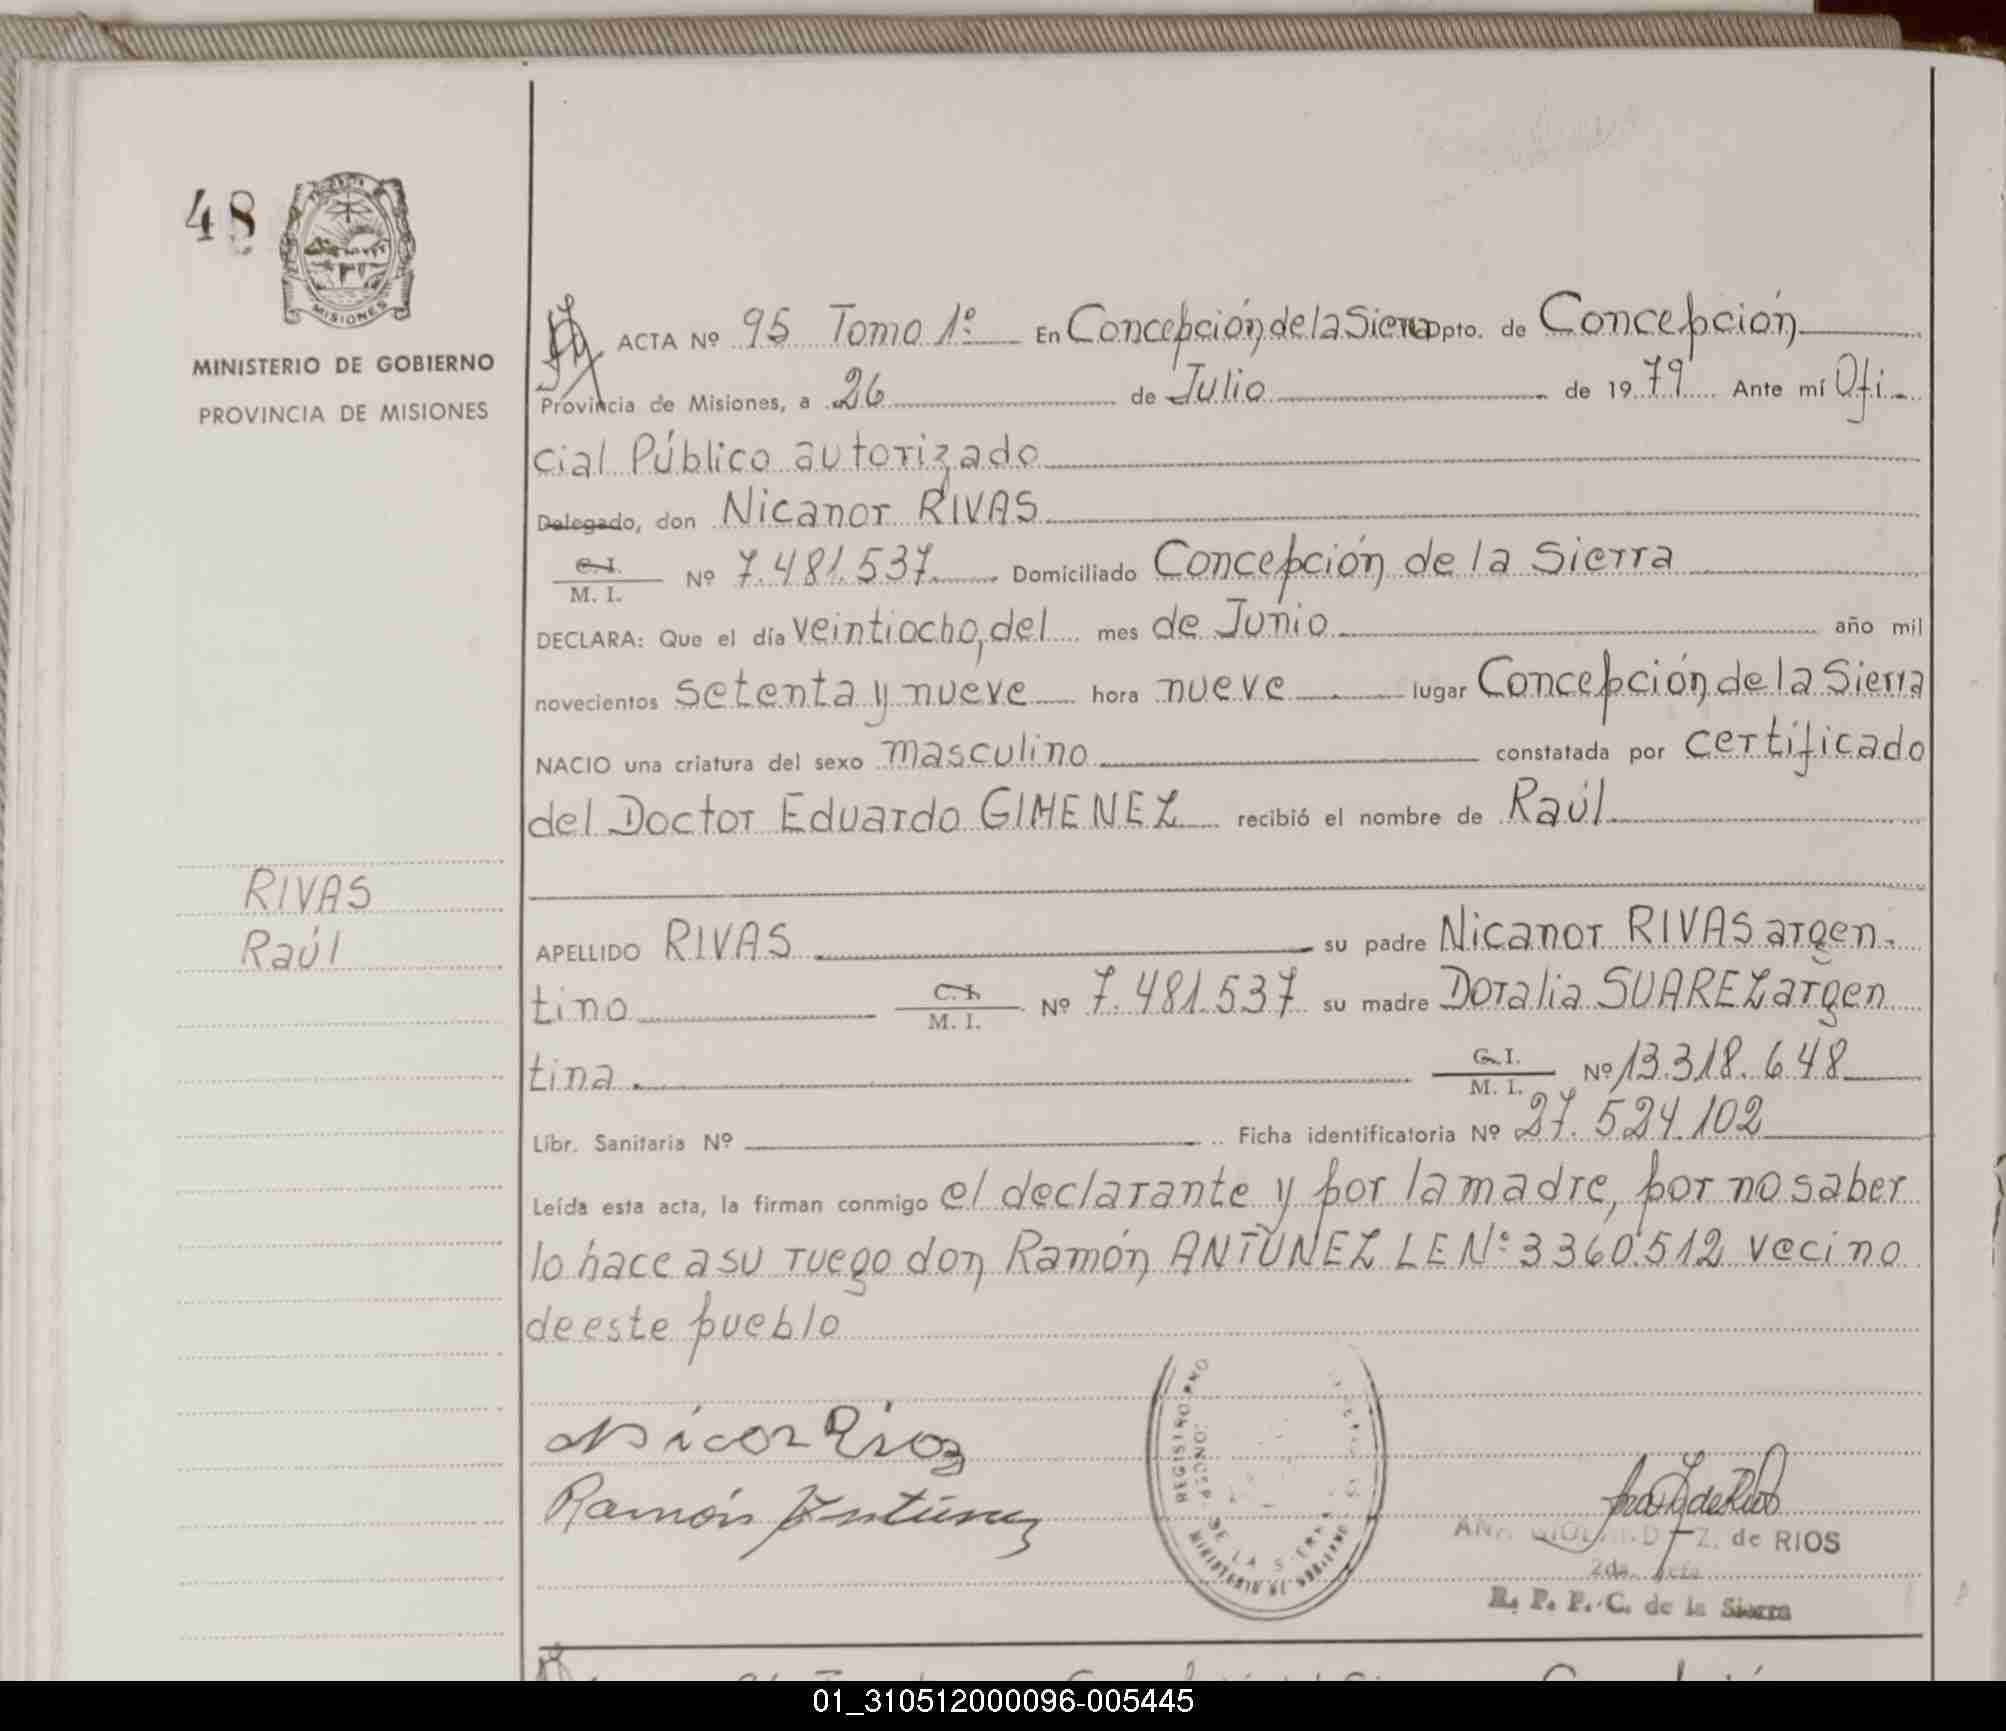 48
MISIONES
MINISTERIO DE GOBIERNO
PROVINCIA DE MISIONES
ACTA Nº 95 Tomo 1º En Concepción de la Sierra Dpto. de Concepción
Provincia de Misiones, a 26 de Julio de 1979 Ante mí Ofi-
cial Público autorizado
Delegado, don Nicanor RIVAS
C. I.
M. I. Nº 7.481.537 Domiciliado Concepción de la Sierra
DECLARA: Que el día veintiocho, del mes de Junio año mil
novecientos setenta y nueve hora nueve lugar Concepción de la Sierra
NACIO una criatura del sexo masculino constatada por certificado
del Doctor Eduardo GIMENEZ recibió el nombre de Raúl
RIVAS
Raúl
APELLIDO RIVAS su padre Nicanor RIVAS argen-
tino C. I. M. I. Nº 7.481.537 su madre Doralia SUAREZ argen
tina. C. I. M. I. Nº 13.318.648
Libr. Sanitaria Nº Ficha identificatoria Nº 27.524.102
Leída esta acta, la firman conmigo el declarante y por la madre, por no saber
lo hace a su ruego don Ramón ANTUNEZ LE Nº 3360.512 vecino
de este pueblo
Ramón Antúnez
REGISTRO
DE LA SIERRA
MINISTERIO DE GOBIERNO
Z. de RIOS
2da. Jefa
R. P. P. C. de la Sierra
01_310512000096-005445